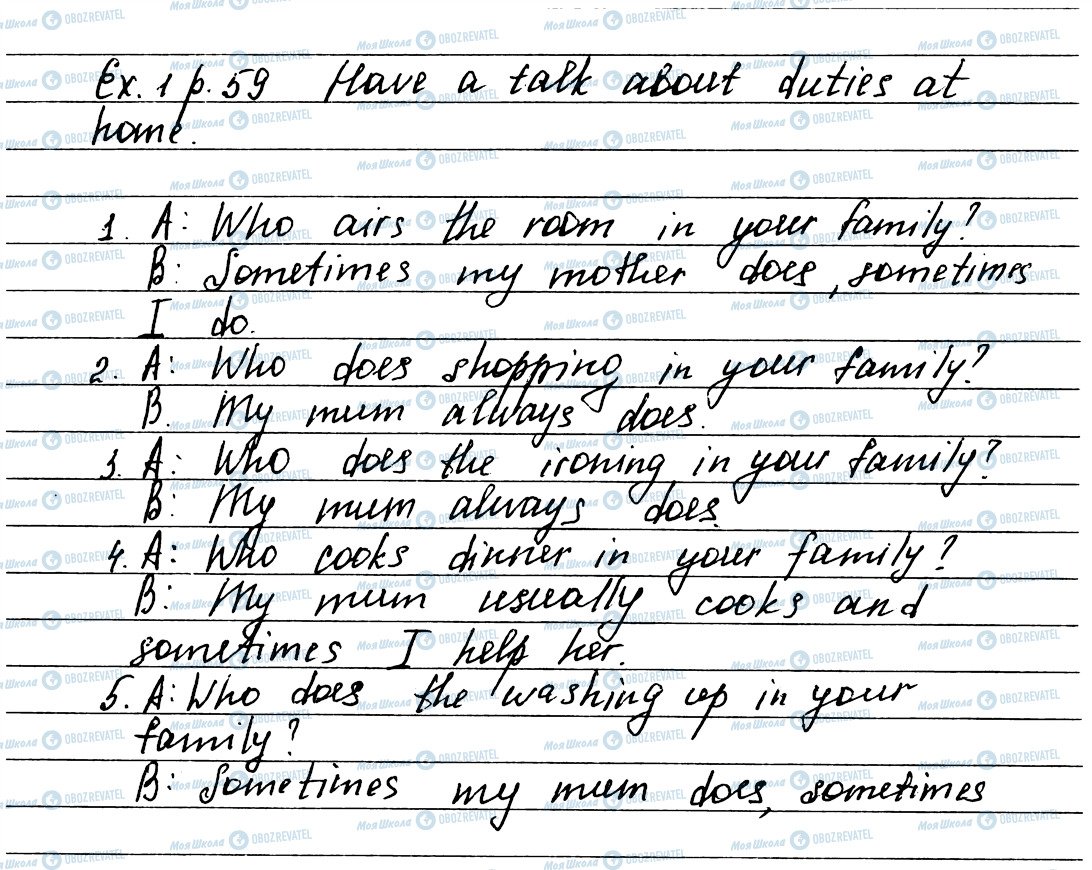 Ex. 1 p. 59 Have a talk about duties at
home.
1. A: Who airs the room in your family?
B: Sometimes my mother does, sometimes
I do.
2. A: Who does shopping in your family?
B. My mum always does.
3. A: Who does the ironing in your family?
B: My mum always does.
4. A: Who cooks dinner in your family?
B: My mum usually cooks and
sometimes I help her.
5. A: Who does the washing up in your
family?
B: Sometimes my mum does, sometimes